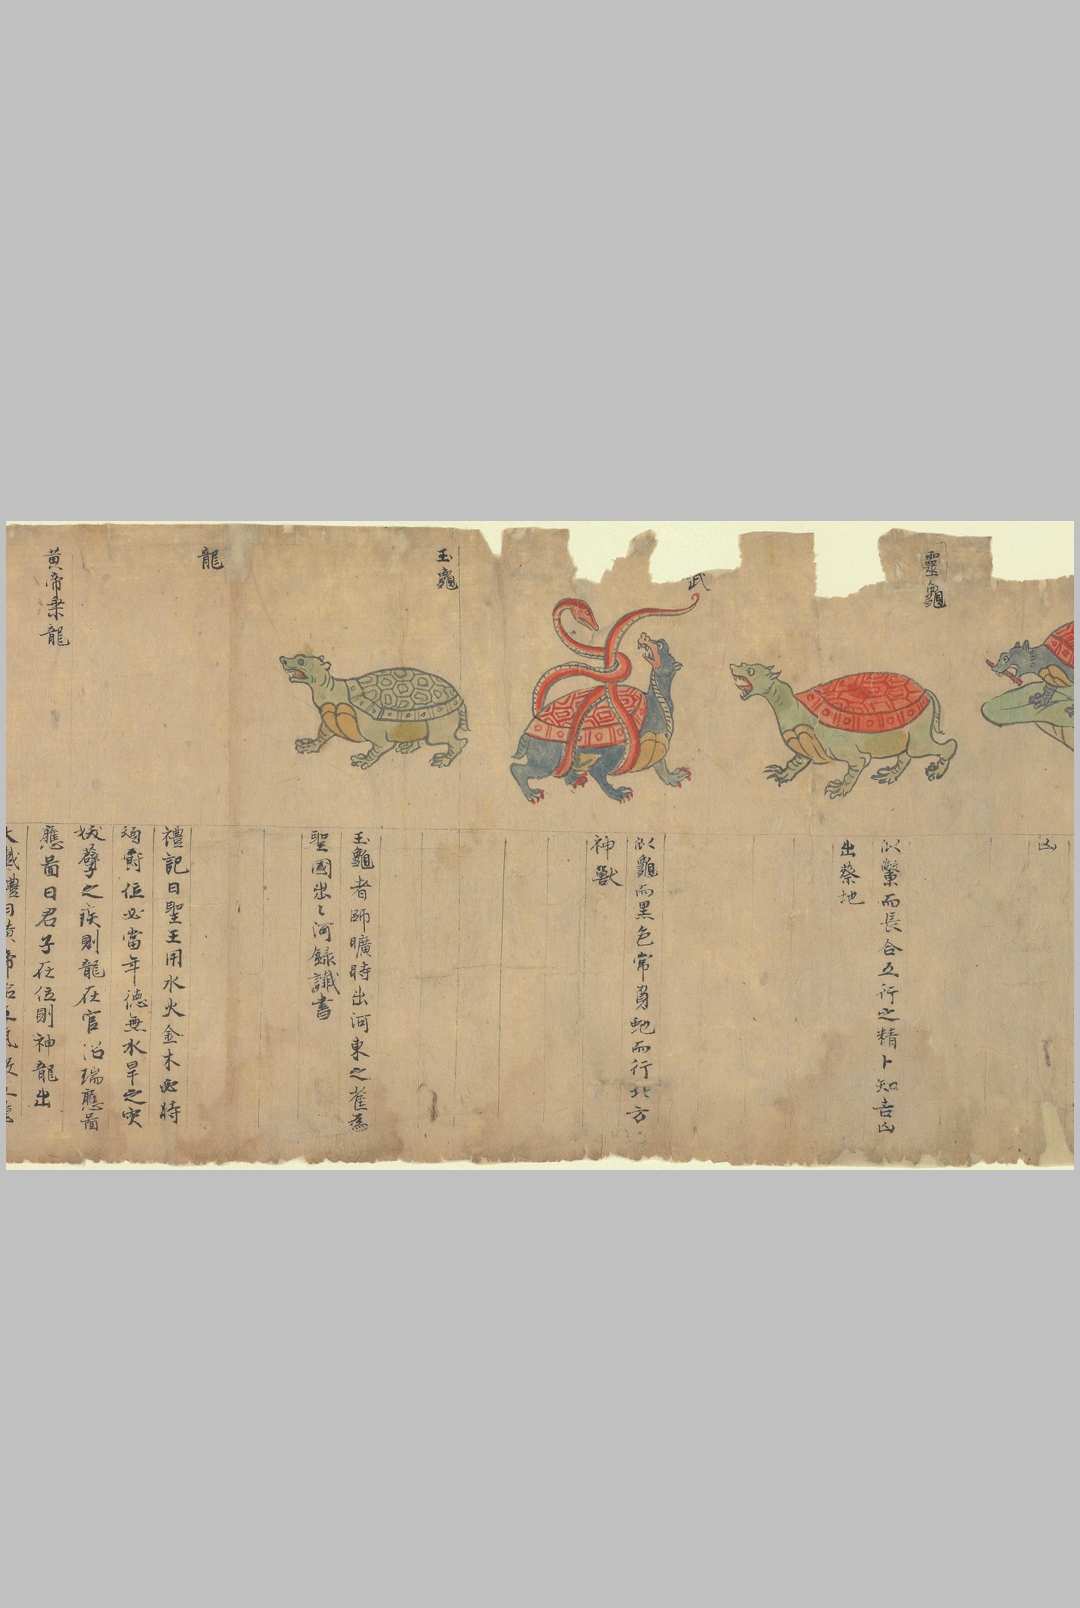 凶
靈龜
似鱉而長合五行之精卜知吉凶
出蔡地
武
似龜而黑色常負虵而行北方
神獸
玉龜
玉龜者師曠時出河東之崔為
聖國出〻河錄讖書
龍
禮記曰聖王用水火金木必時
爵位必當年德無水旱之灾
孽之疾則龍在官沼瑞應圖
黃帝乘龍
應啚曰君子在位則神龍出